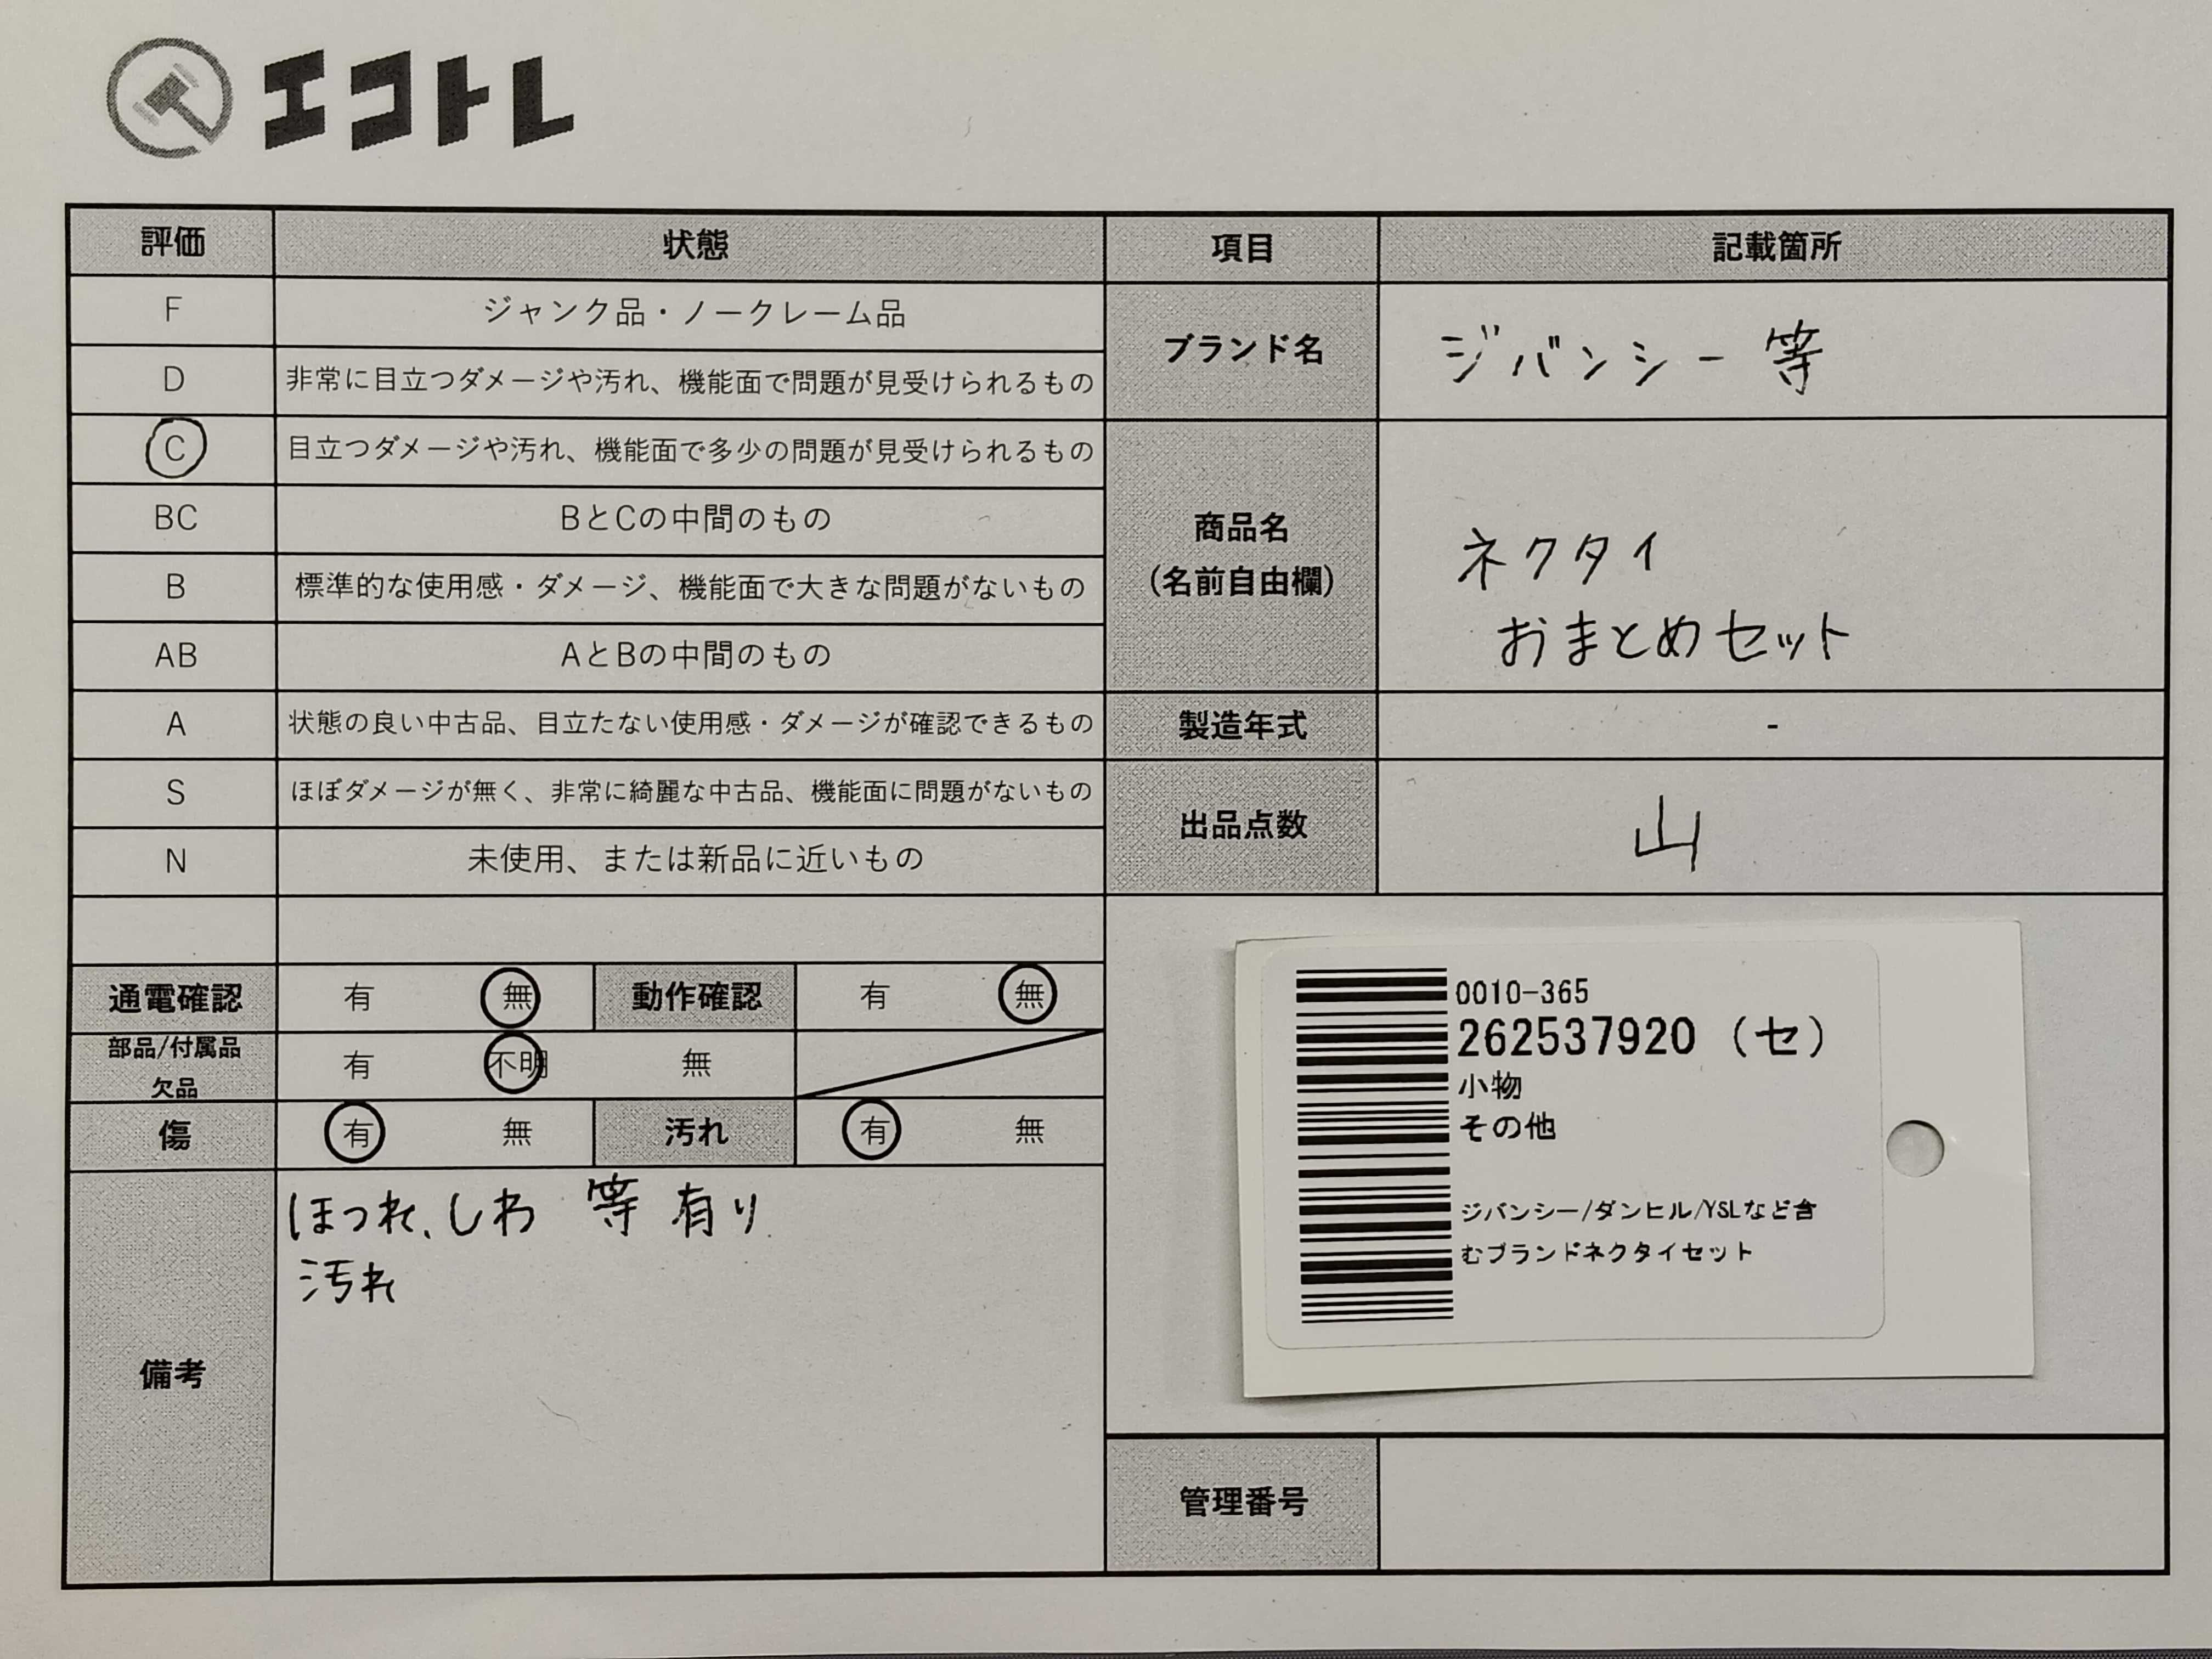 エコトレ
評価 状態 項目 記載箇所
F ジャンク品・ノークレーム品
D 非常に目立つダメージや汚れ、機能面で問題が見受けられるもの
C 目立つダメージや汚れ、機能面で多少の問題が見受けられるもの
BC BとCの中間のもの
B 標準的な使用感・ダメージ、機能面で大きな問題がないもの
AB AとBの中間のもの
A 状態の良い中古品、目立たない使用感・ダメージが確認できるもの
S ほぼダメージが無く、非常に綺麗な中古品、機能面に問題がないもの
N 未使用、または新品に近いもの
ブランド名 ジバンシー等
商品名
(名前自由欄)
ネクタイ
おまとめセット
製造年式 -
出品点数 山
通電確認 有 無 動作確認 有 無
部品/付属品
欠品
有 不明 無
傷 有 無 汚れ 有 無
備考
ほつれ、しわ 等 有り
汚れ
0010-365
262537920 (セ)
小物
その他
ジバンシー/ダンヒル/YSLなど含
むブランドネクタイセット
管理番号